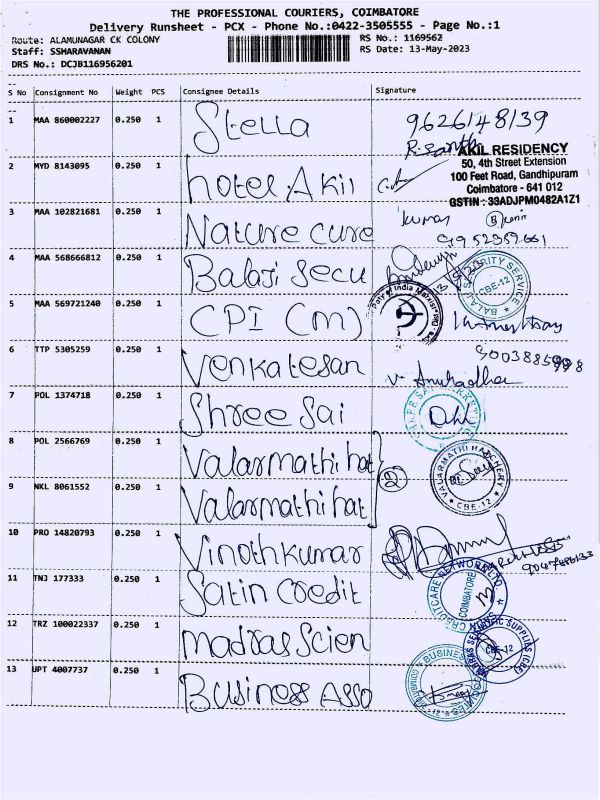 THE PROFESSIONAL COURIERS, COIMBATORE
Delivery Runsheet - PCX - Phone No.:0422-3505555 - Page No.:1
Route: ALAMUNAGAR CK COLONY RS No.: 1169562
Staff: SSHARAVANAN RS Date: 13-May-2023
DRS No.: DCJB116956201
S No Consignment No Weight PCS Consignee Details Signature
1 MAA 860002227 0.250 1 Stella 9626148139
AKIL RESIDENCY
50, 4th Street Extension
100 Feet Road, Gandhipuram
Coimbatore - 641 012
GSTIN : 33ADJPM0482A1Z1
2 MYD 8143095 0.250 1 hotel Akil
3 MAA 102821681 0.250 1 Nature cure Kumar
4 MAA 568666812 0.250 1 Balaji Secu
SECURITY SERVICE CBE-12
5 MAA 569721240 0.250 1 CPI (M)
of India Marxist
6 TTP 5305259 0.250 1 Venkatesan
V. Anuradha
7 POL 1374718 0.250 1 Shree Sai
8 POL 2566769 0.250 1 Valarmathi hat 2
9 NKL 8061552 0.250 1 Valarmathi hat
VALARMATHI HATCHERY CBE-12
10 PRO 14820793 0.250 1 Vinothkumar
11 TNJ 177333 0.250 1 Satin Credit
CREDITCARE NETWORK LTD COIMBATORE
12 TRZ 100022337 0.250 1 Madras Scien
MADRAS SCIENTIFIC SUPPLIES (CBE) CBE-12
13 UPT 4007737 0.250 1 Business Asso
BUSINESS ASSOCIATES COIMBATORE